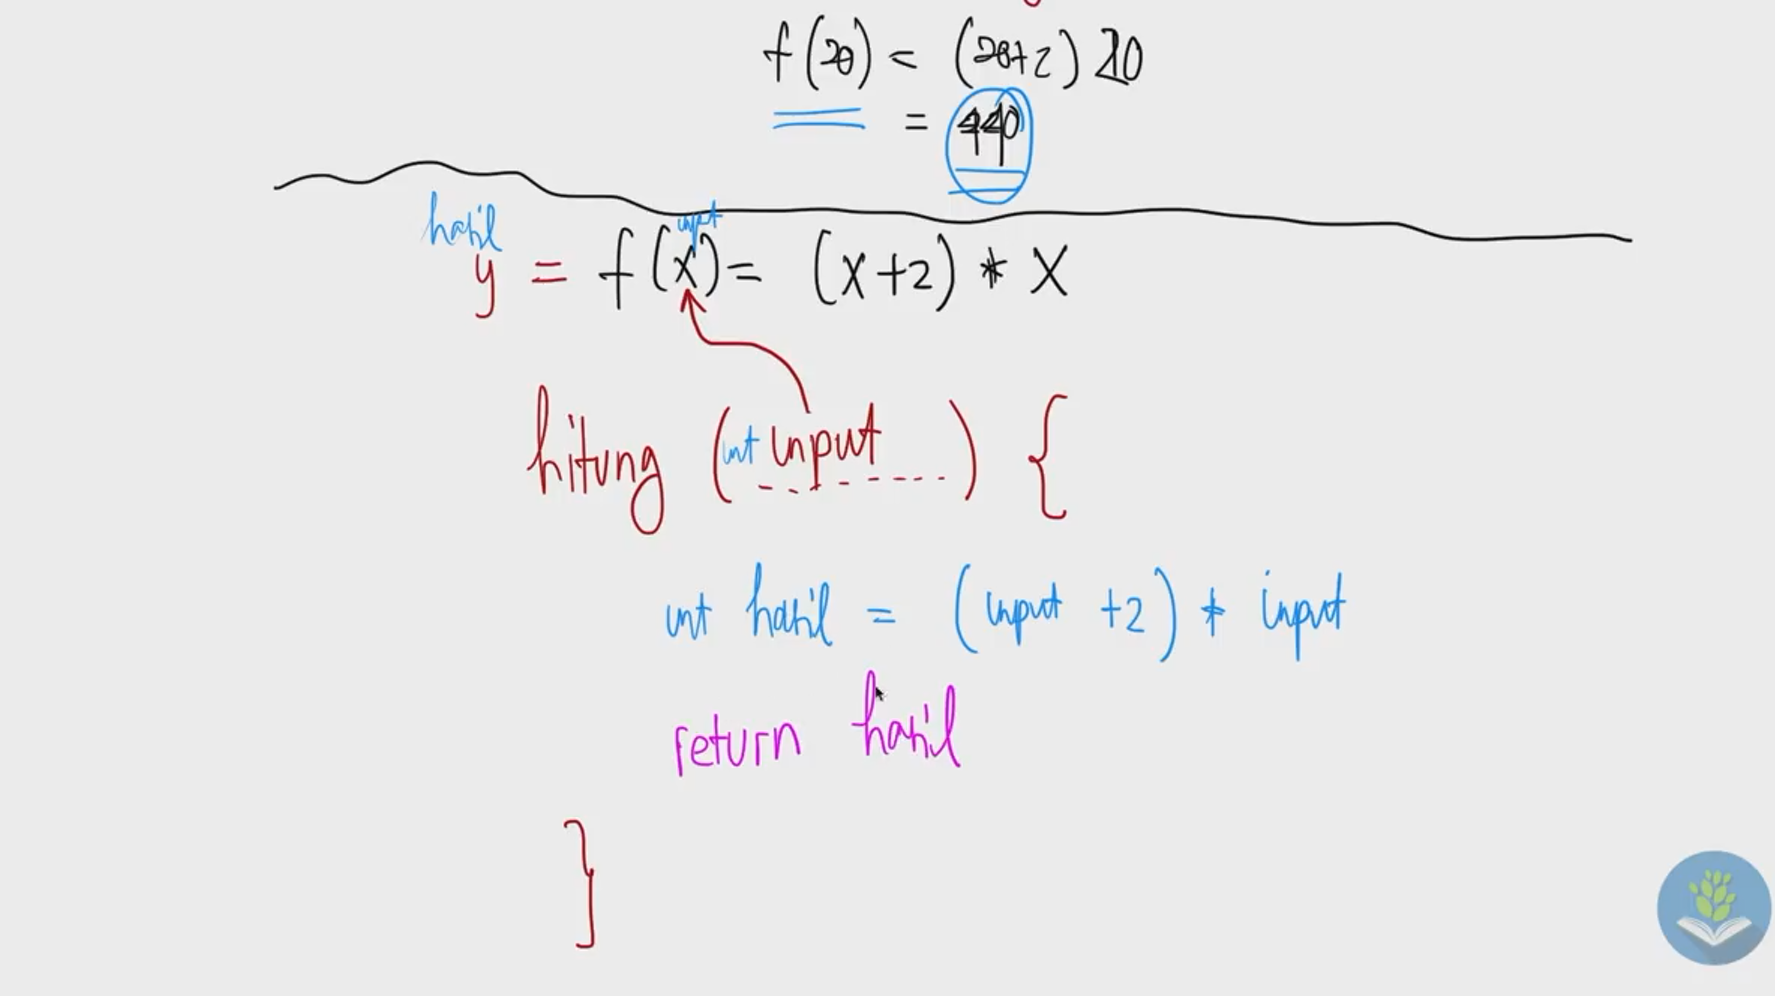 f(20) = (20+2) 20
= 440
hasil input
y = f(x) = (x+2) * x
hitung (int input) {
int hasil = (input +2) * input
return hasil
}